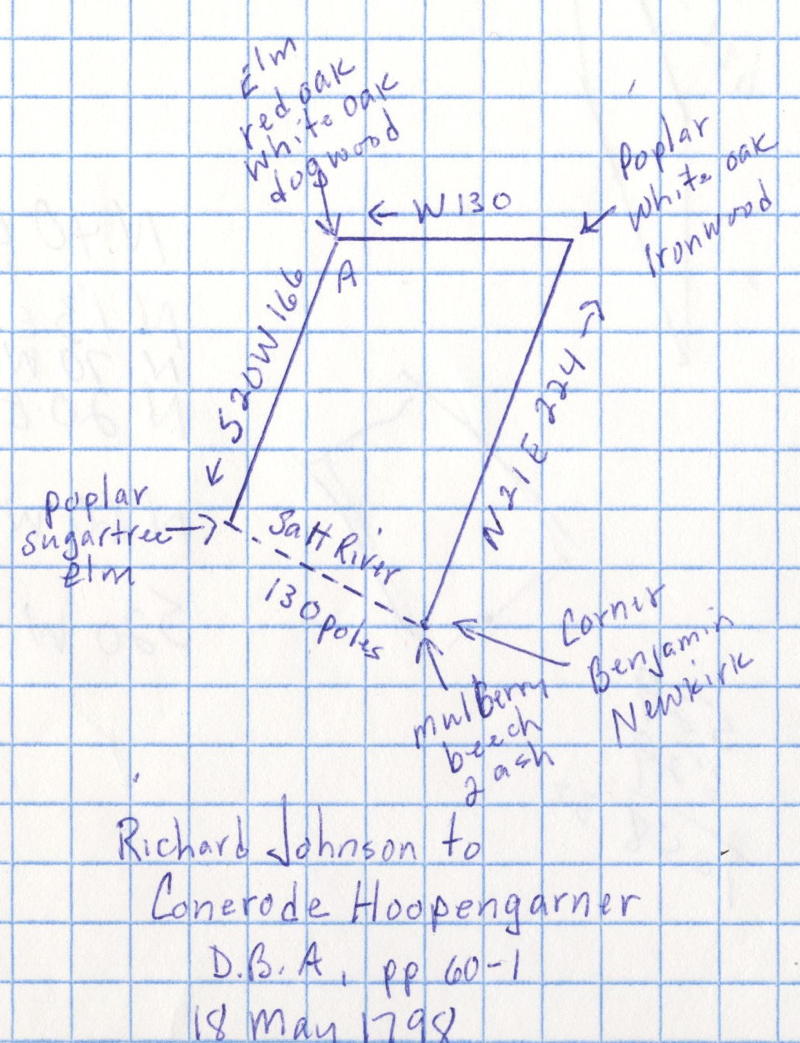 Elm
red oak
white oak
dogwood
← W 130
Poplar
white oak
Ironwood
A
S20W 166
N21E 224
poplar
sugartree
elm
Salt River
130 poles
Corner
Benjamin
Newkirk
mulberry
beech
2 ash
Richard Johnson to
Conerode Hoopengarner
D.B. A, pp 60-1
18 May 1798